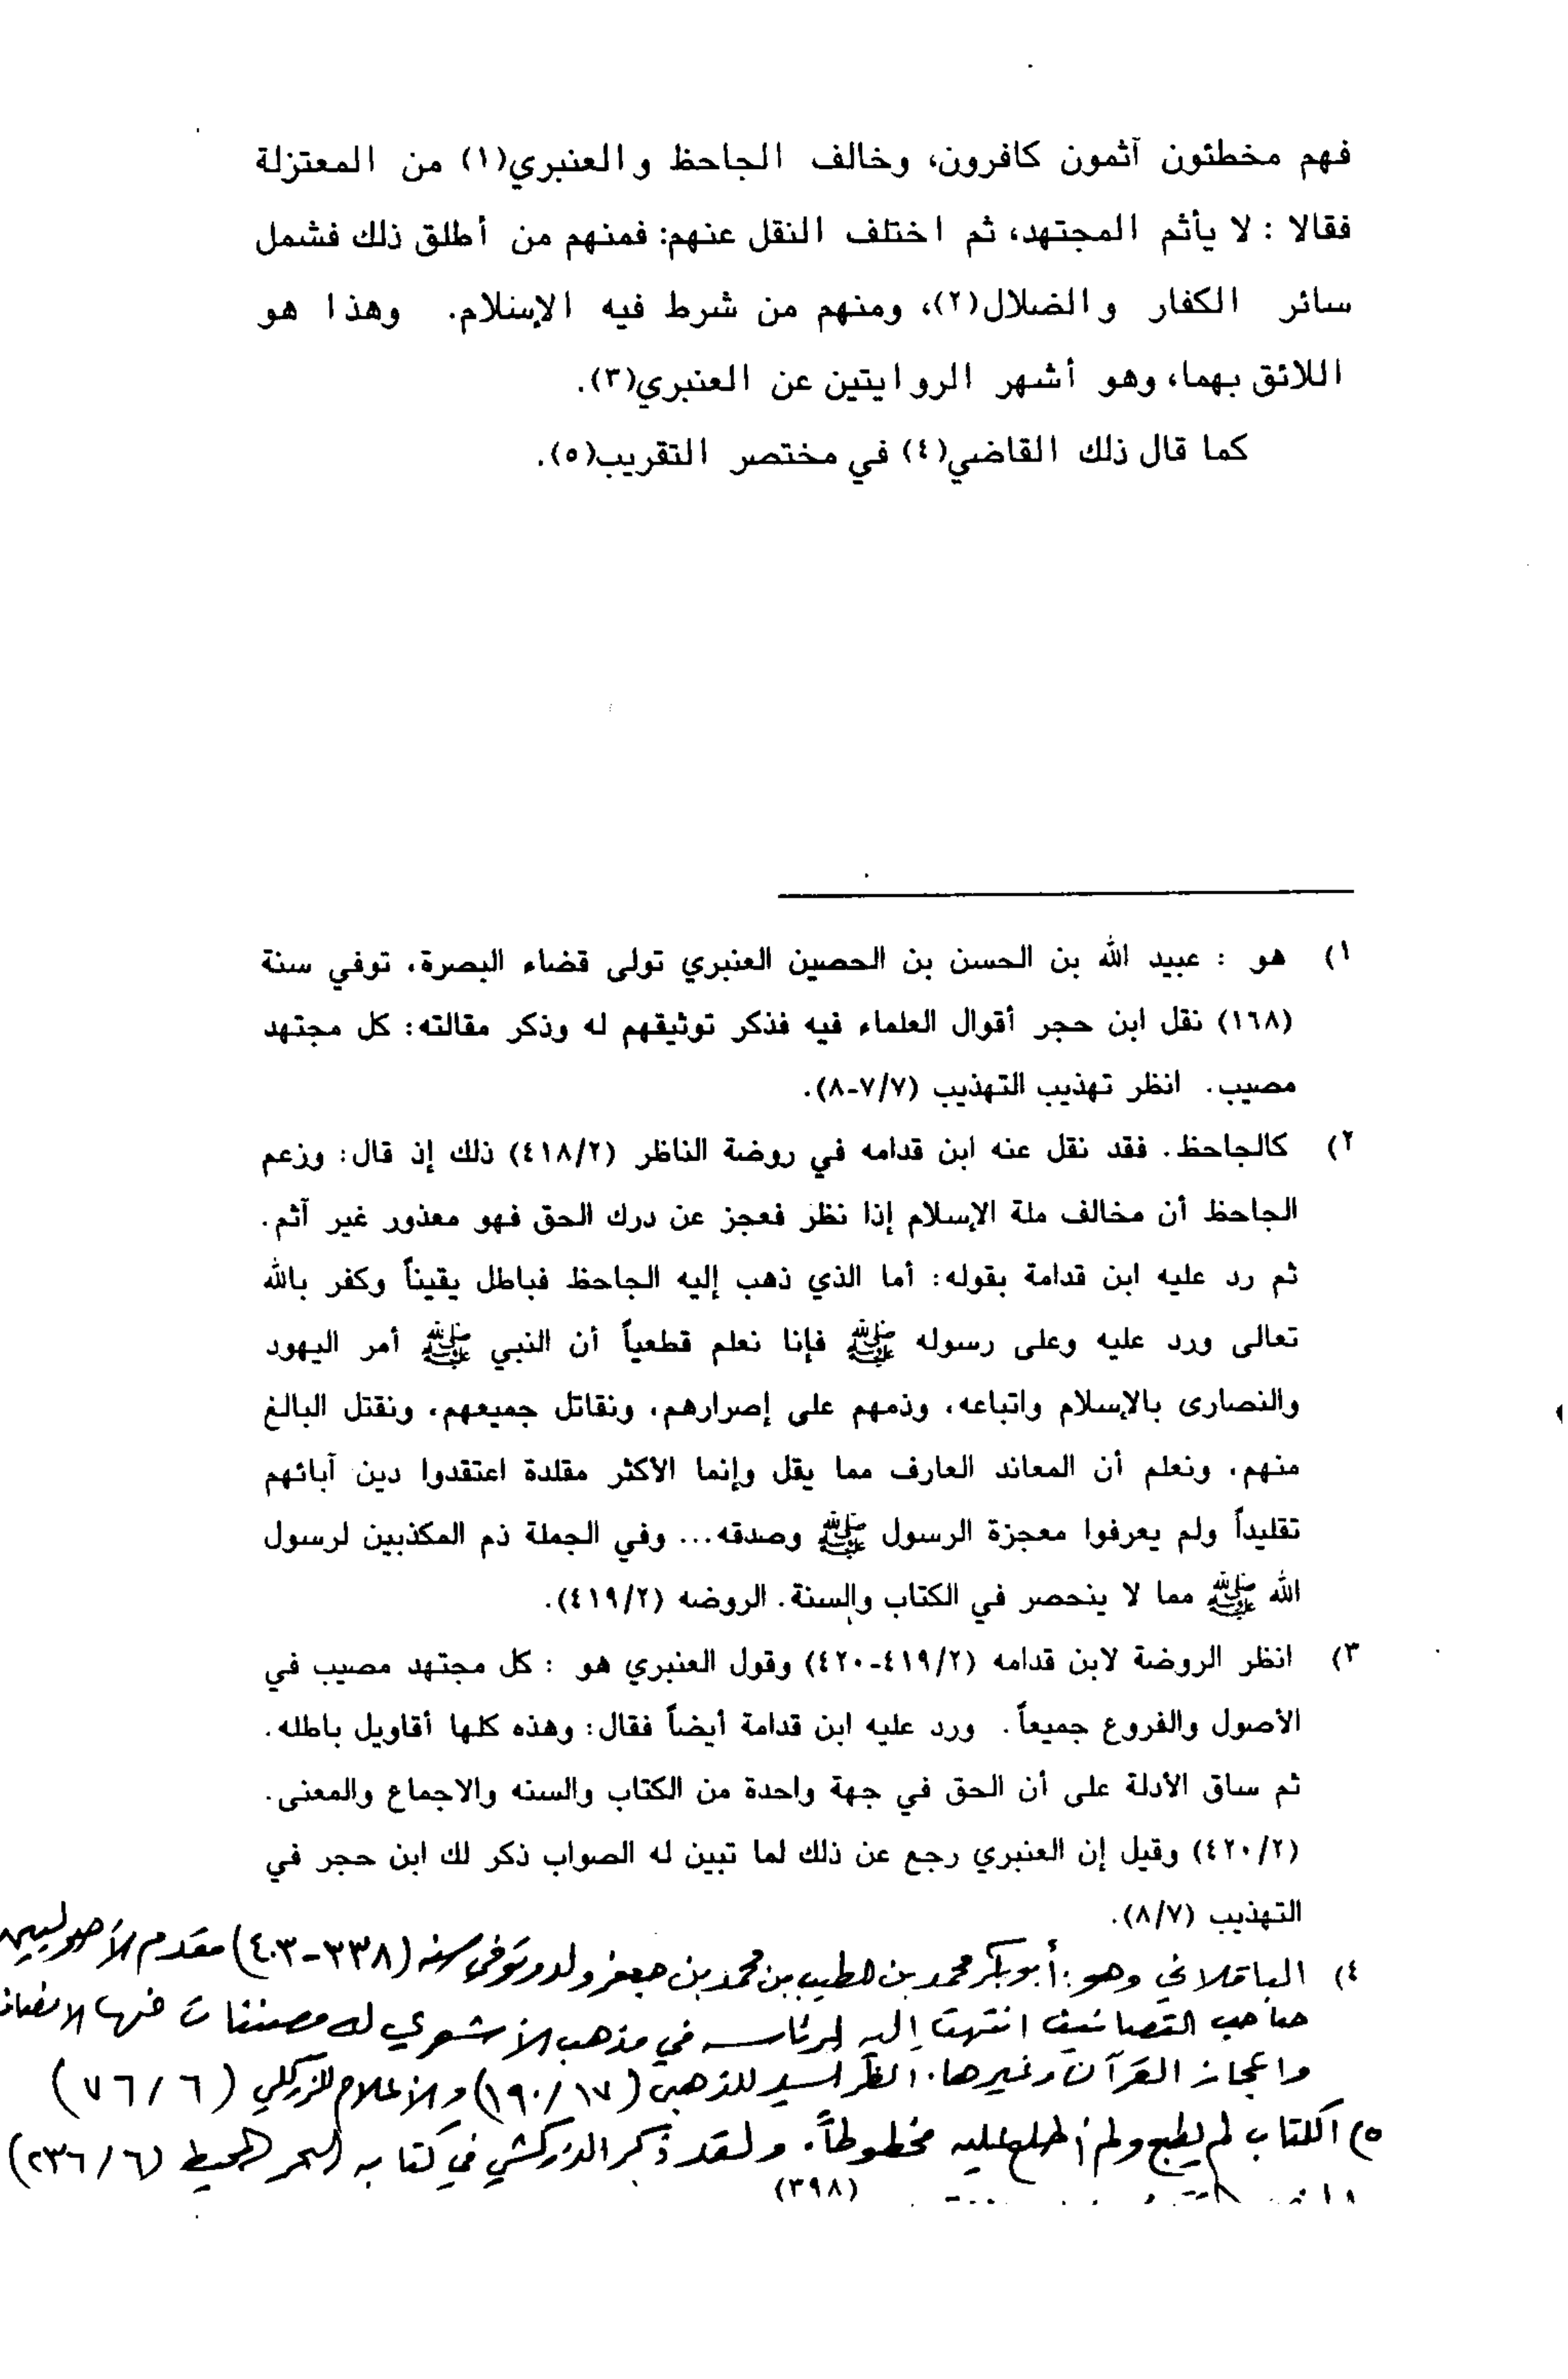 فهم مخطئون آثمون كافرون، وخالف الجاحظ والعنبري(١) من المعتزلة
فقالا : لا يأثم المجتهد، ثم اختلف النقل عنهم: فمنهم من أطلق ذلك فشمل
سائر الكفار والضلال(٢)، ومنهم من شرط فيه الإسلام. وهذا هو
اللائق بهما، وهو أشهر الروايتين عن العنبري(٣).
كما قال ذلك القاضي(٤) في مختصر التقريب(٥).
١) هو : عبيد الله بن الحسن بن الحصين العنبري تولى قضاء البصرة، توفي سنة
(١٦٨) نقل ابن حجر أقوال العلماء فيه فذكر توثيقهم له وذكر مقالته: كل مجتهد
مصيب. انظر تهذيب التهذيب (٧/٧-٨).
٢) كالجاحظ. فقد نقل عنه ابن قدامه في روضة الناظر (٤١٨/٢) ذلك إذ قال: وزعم
الجاحظ أن مخالف ملة الإسلام إذا نظر فعجز عن درك الحق فهو معذور غير آثم.
ثم رد عليه ابن قدامة بقوله: أما الذي ذهب إليه الجاحظ فباطل يقيناً وكفر بالله
تعالى ورد عليه وعلى رسوله ﷺ فإنا نعلم قطعياً أن النبي ﷺ أمر اليهود
والنصارى بالإسلام واتباعه، وذمهم على إصرارهم، ونقاتل جميعهم، ونقتل البالغ
منهم، ونعلم أن المعاند العارف مما يقل وإنما الأكثر مقلدة اعتقدوا دين آبائهم
تقليداً ولم يعرفوا معجزة الرسول ﷺ وصدقه... وفي الجملة ذم المكذبين لرسول
الله ﷺ مما لا ينحصر في الكتاب والسنة. الروضه (٤١٩/٢).
٣) انظر الروضة لابن قدامه (٤١٩/٢-٤٢٠) وقول العنبري هو : كل مجتهد مصيب في
الأصول والفروع جميعاً. ورد عليه ابن قدامة أيضاً فقال: وهذه كلها أقاويل باطله.
ثم ساق الأدلة على أن الحق في جهة واحدة من الكتاب والسنه والاجماع والمعنى.
(٤٢٠/٢) وقيل إن العنبري رجع عن ذلك لما تبين له الصواب ذكر لك ابن حجر في
التهذيب (٨/٧).
٤) الباقلاني وهو: أبو بكر محمد بن الطيب بن محمد بن جعفر ولد وتوفي سنه (٣٣٨-٤٠٣) مقدم الأصوليين
صاحب التصانيف انتهت إليه الرئاسه في مذهب الأشعري له مصنفات منها الانصاف
واعجاز القرآن وغيرها. انظر السير للذهبي (١٩٠/١٧) والأعلام للزركلي (٧٦/٦)
٥) الكتاب لم يطبع ولم أطلع عليه مخطوطاً. ولقد ذكر الزركشي في كتابه البحر المحيط (٢٣٦/٦)
(٣٩٨)